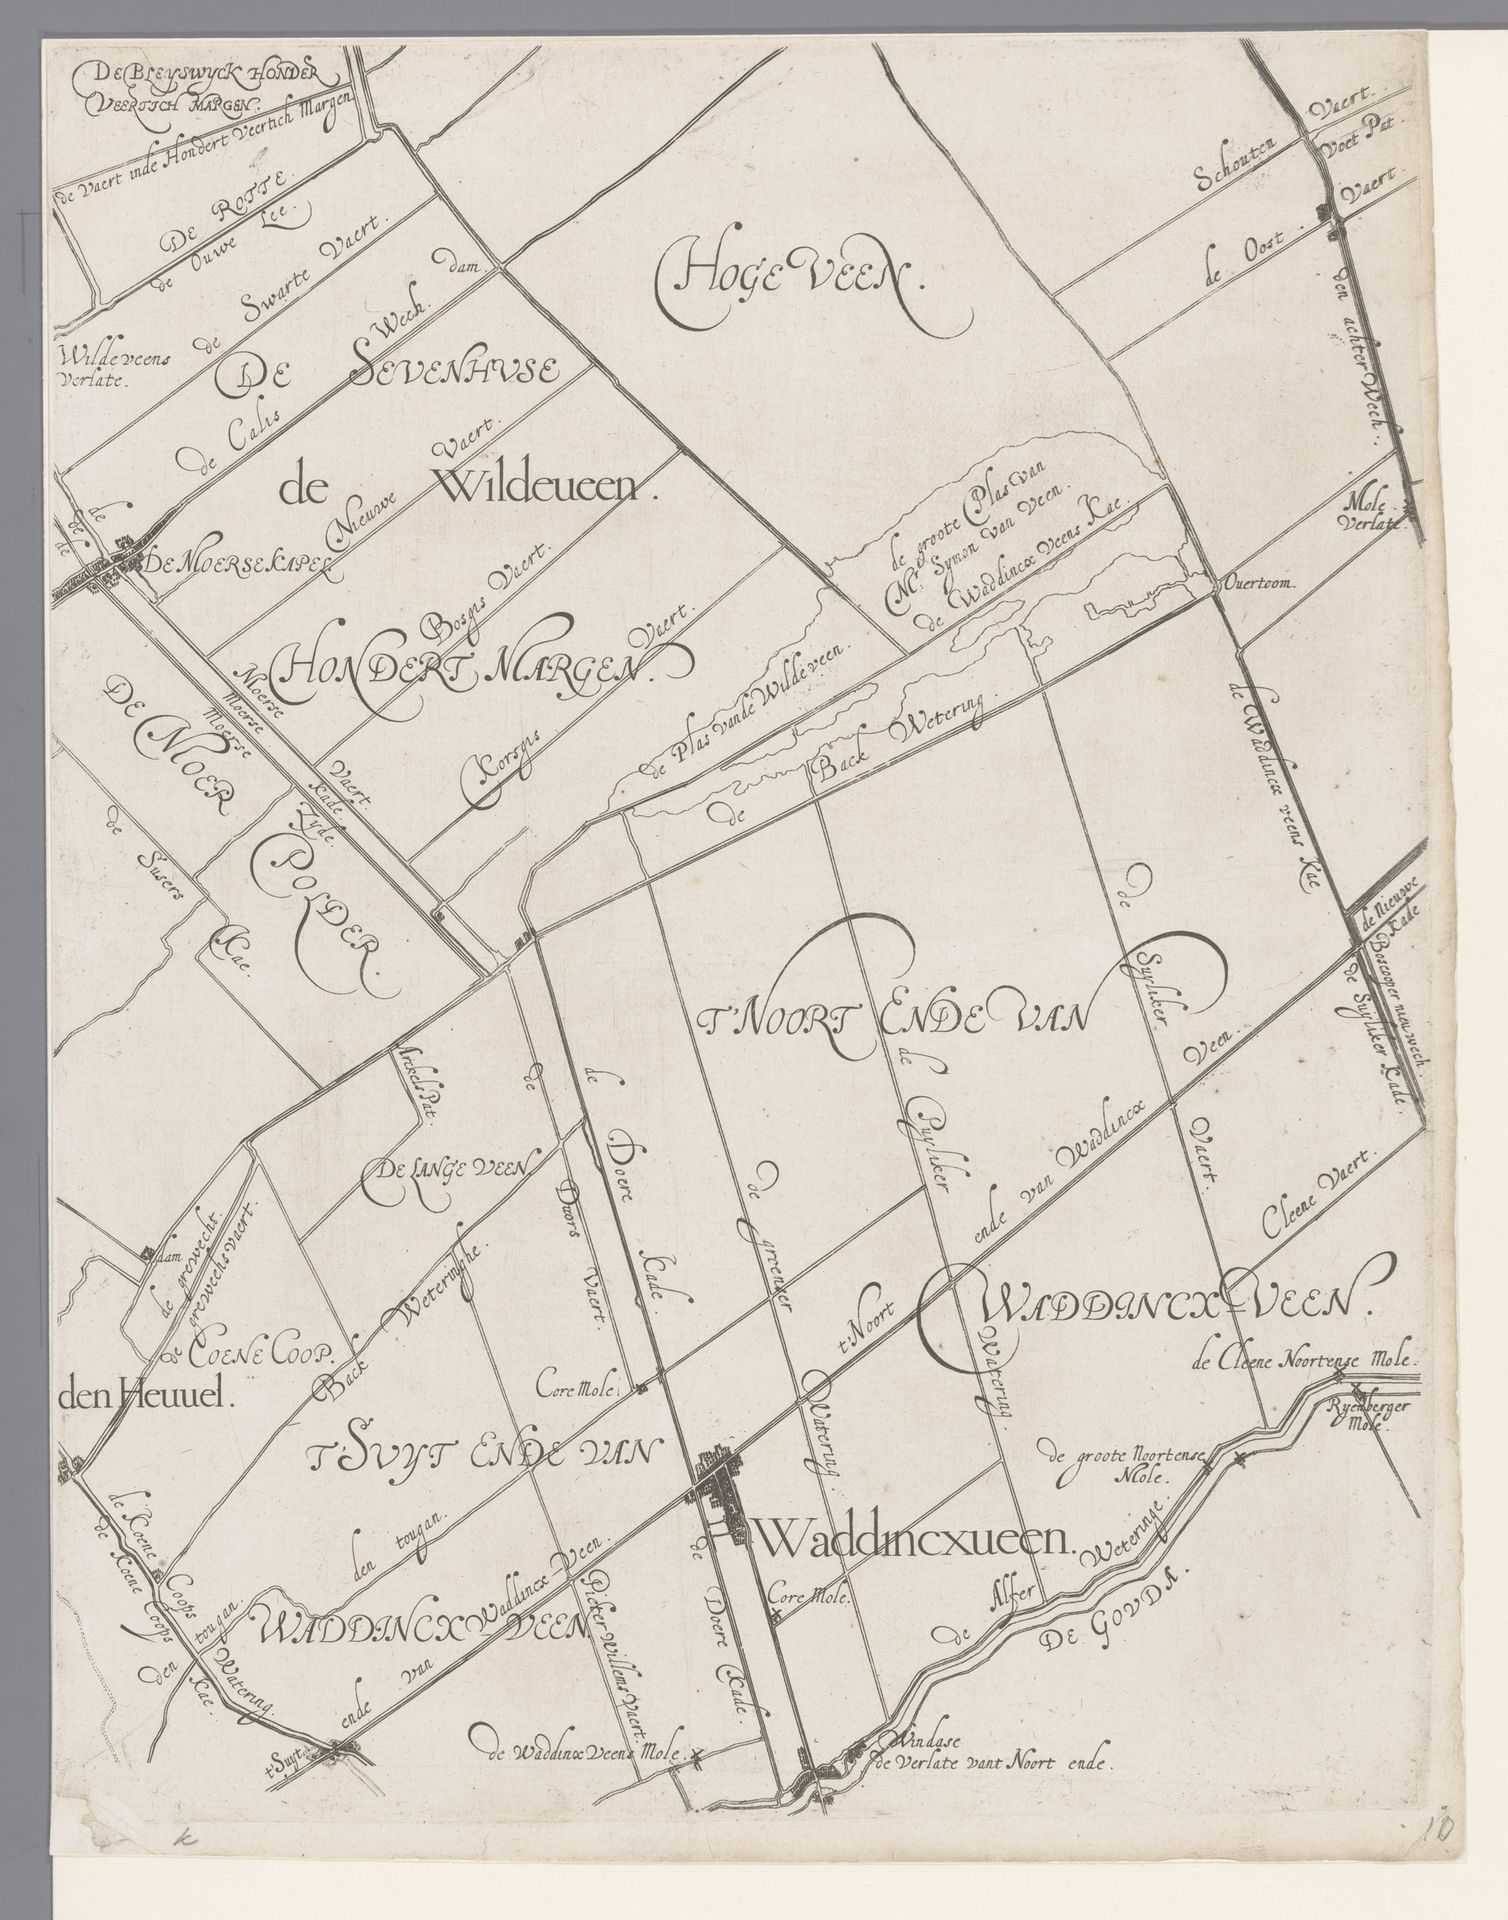 DE BLEYSWYCK HONDER
VEERTICH MARGEN.
de Vaert inde Hondert Veertich Margen
DE ROTTE.
de Ouwe Lee.
de Swarte Vaert.
dam
Wildeveens
verlate.
DE SEVENHVSE
de Calis Wech.
HOGE VEEN.
Schouten Vaert.
Voet Pat.
de Oost Vaert.
den achter Wech.
de Wildeueen.
de Nieuwe Vaert.
de
de
DE MOERSEKAPEL
Bosgis Vaert.
HONDERT MARGEN.
Korsgis Vaert.
de groote Plas van
Mr. Symon van Veen.
de Waddincx Veens Kae.
Mole
Verlate.
Ouertoom.
Moerse Vaert
Moerse Kade.
Moerse Zyde.
DE MOER
POLDER.
de Susers Kae.
de Plas vande Wildeveen.
de Back Wetering.
de Waddincx veens Kae
de Nieuwe
Kade
Boscooper nieu wech.
de Suyliker Kade.
T'NOORT ENDE VAN
de Suyliker Vaert.
de Puyliker Watering.
de greenser Watering.
Arckels Pat.
DE LANGE VEEN
de Doors Vaert.
de Doere Kade.
t'Noort ende van Waddincx Veen.
Cleene Vaert.
dam
de grewechs.
de grewechs vaert.
COENE COOP.
Back Weteringhe.
WADDINCX-VEEN.
den Heuuel.
Core Mole.
de Cleene Noortense Mole.
Ryenberger
Mole.
T'SUYT ENDE VAN
de groote Noortense
Mole.
de Koene Coops Watering.
de Koene Coops Kae.
den tougan.
den tougan.
Waddincxueen.
WADDINCX-VEEN.
t'Suyt ende van Waddincx-Veen.
Pieter Willems Vaert.
de Doere Kade.
Core Mole.
de Alfer Weteringe.
DE GOUDA.
de Waddinx Veens Mole.
Windase
de Verlate vant Noort ende.
k
10